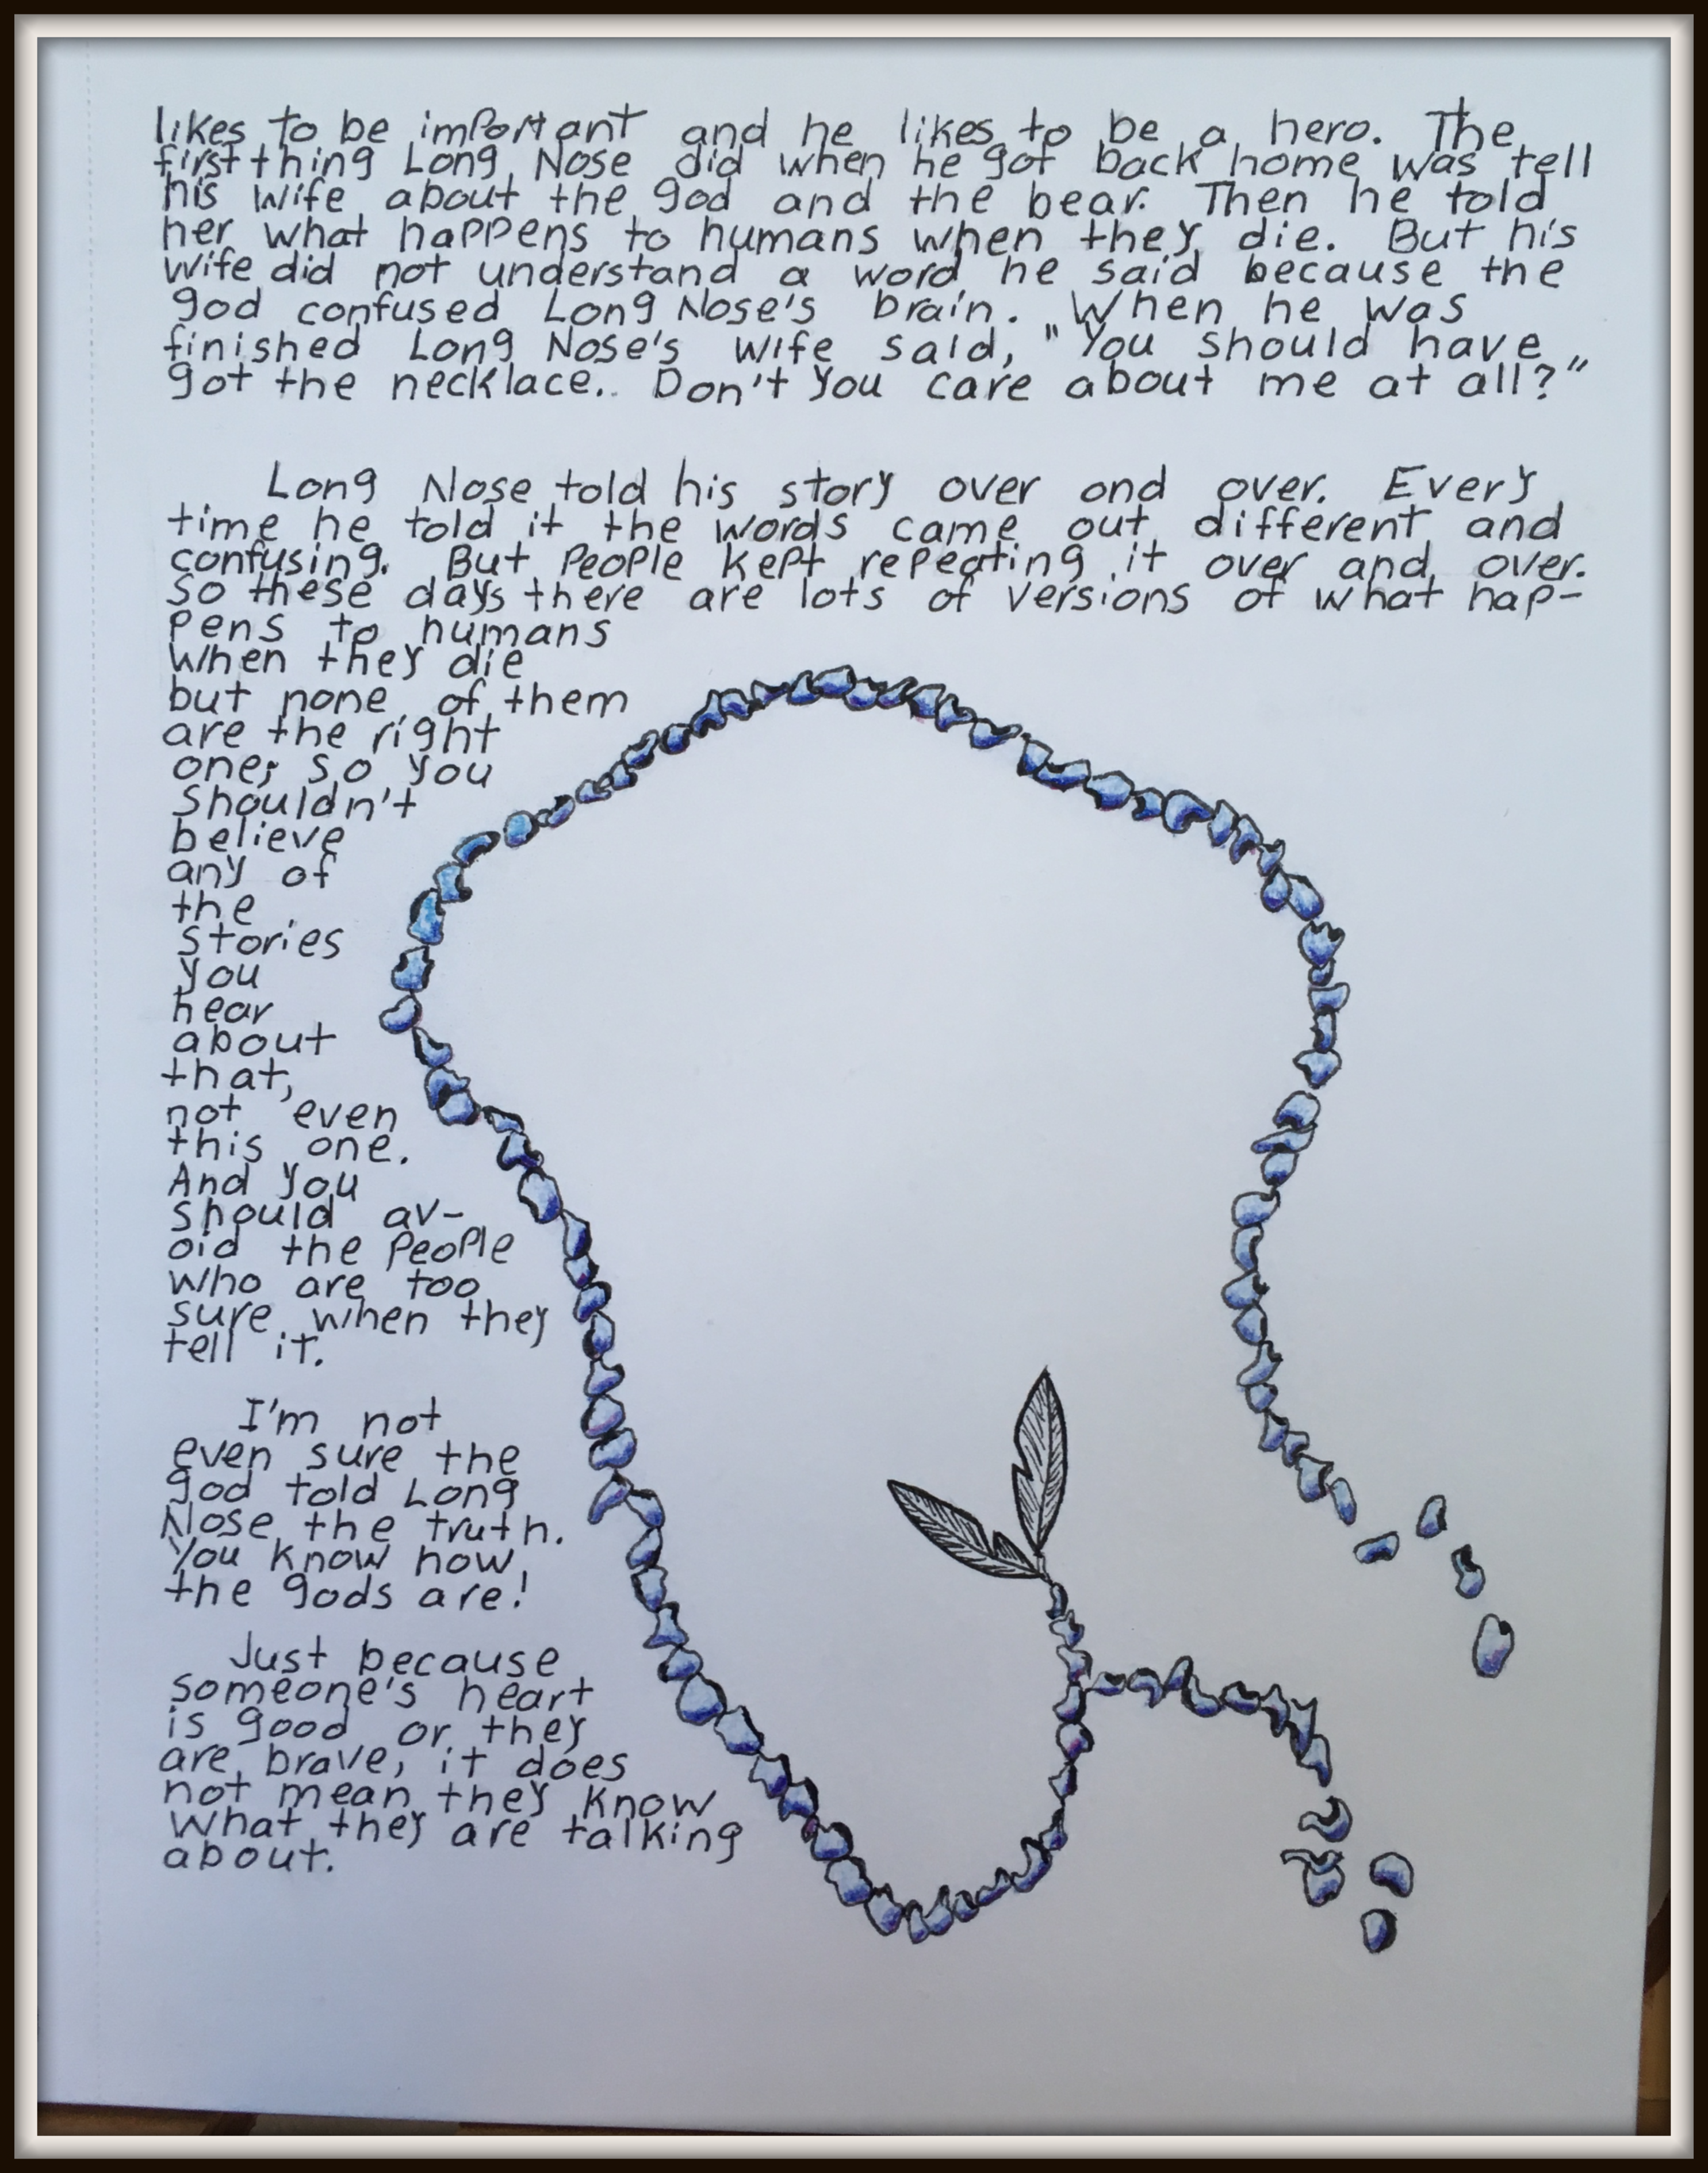 likes to be important and he likes to be a hero. The
first thing Long Nose did when he got back home was tell
his wife about the god and the bear. Then he told
her what happens to humans when they die. But his
wife did not understand a word he said because the
god confused Long Nose's brain. When he was
finished Long Nose's wife said, "You should have
got the necklace. Don't you care about me at all?"
Long Nose told his story over and over. Every
time he told it the words came out different and
confusing. But people kept repeating it over and over.
So these days there are lots of versions of what hap-
pens to humans
when they die
but none of them
are the right
one; so you
shouldn't
believe
any of
the
stories
you
hear
about
that,
not even
this one.
And you
should av-
oid the people
who are too
sure when they
tell it.
I'm not
even sure the
god told Long
Nose the truth.
You know how
the gods are!
Just because
someone's heart
is good or they
are brave, it does
not mean they know
what they are talking
about.